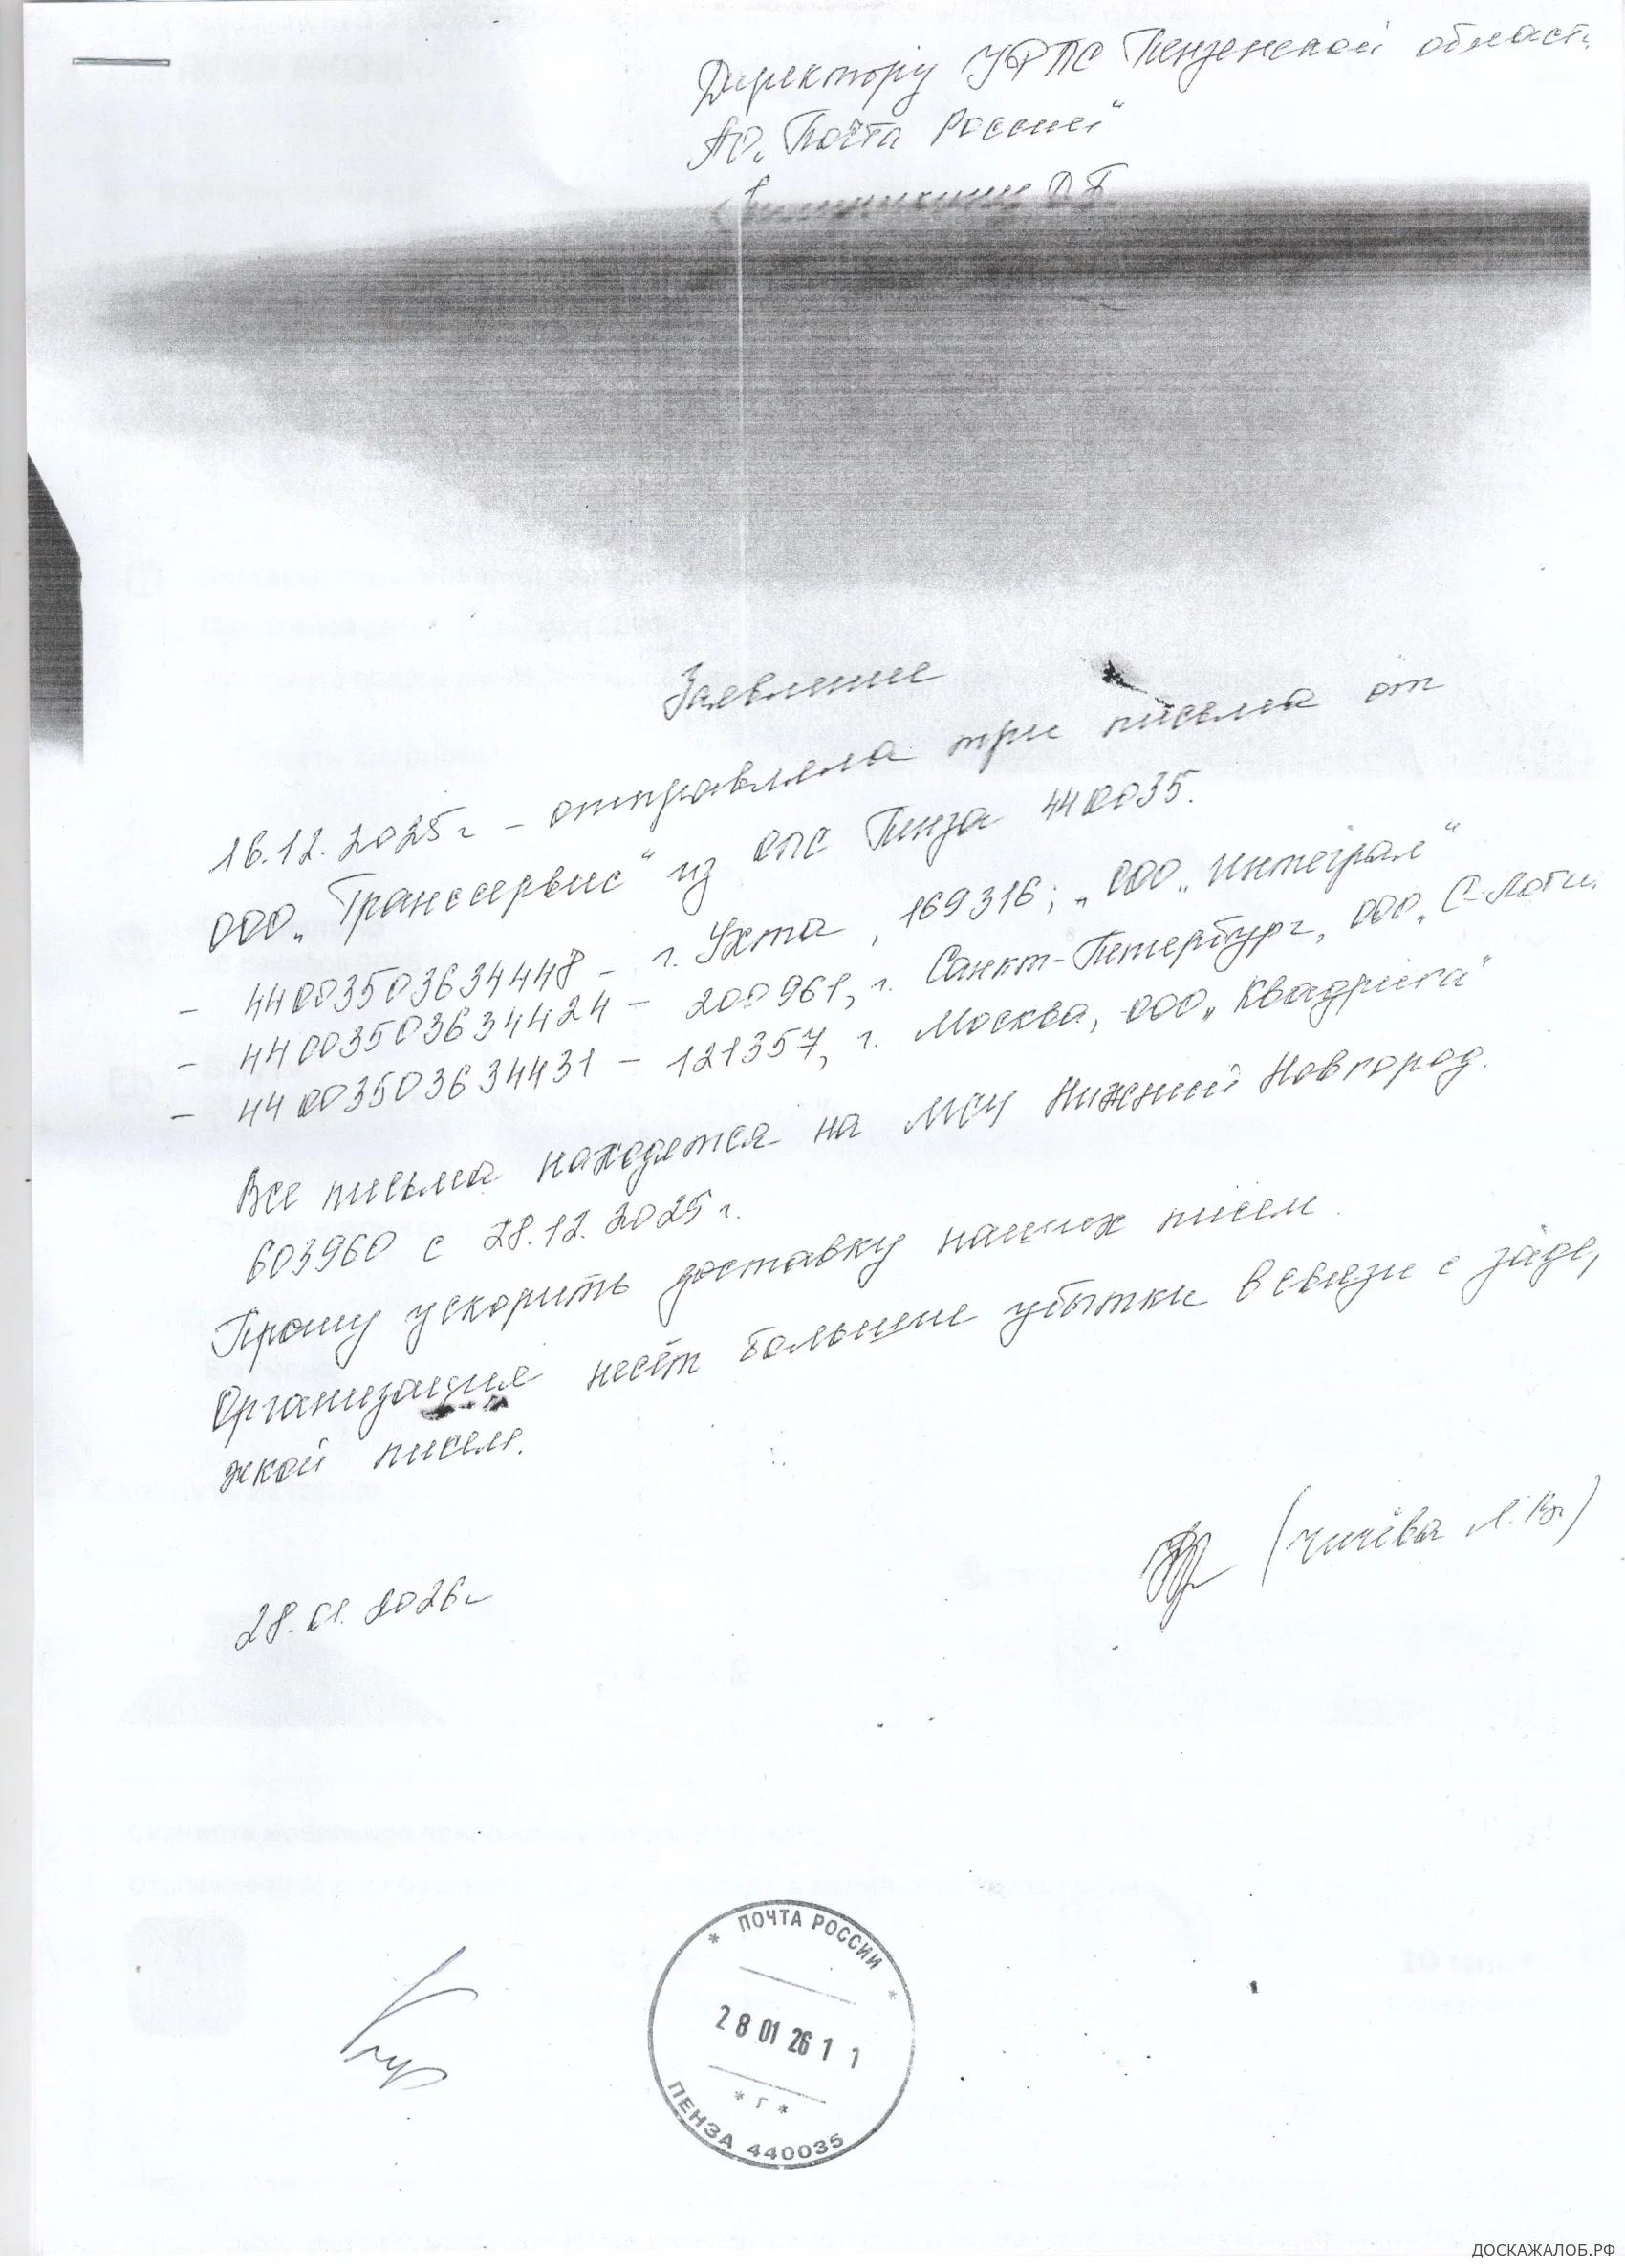 Директору УФПС Пензенской област
АО „Почта России"
Д.Б.
Заявление
16.12.2025г - отправляла три письма от
ООО „Транссервис" из ОПС Пенза 440035.
- 44003503634448 - г. Ухта, 169316; „ООО „Интеграл"
- 44003503634424 - 200961, г. Санкт-Петербург, ООО „С-Логи
- 44003503634431 - 121357, г. Москва, ООО „Квадрига"
Все письма находятся на МСЦ Нижний Новгород.
603960 с 28.12.2025 г.
Прошу ускорить доставку наших писем.
Организация несёт большие убытки в связи с заде,
жкой писем.
(Чичёва Л.В.)
28.01.2026г
ПОЧТА РОССИИ
28 01 26 1 1
* Г *
ПЕНЗА 440035
ДОСКАЖАЛОБ.РФ